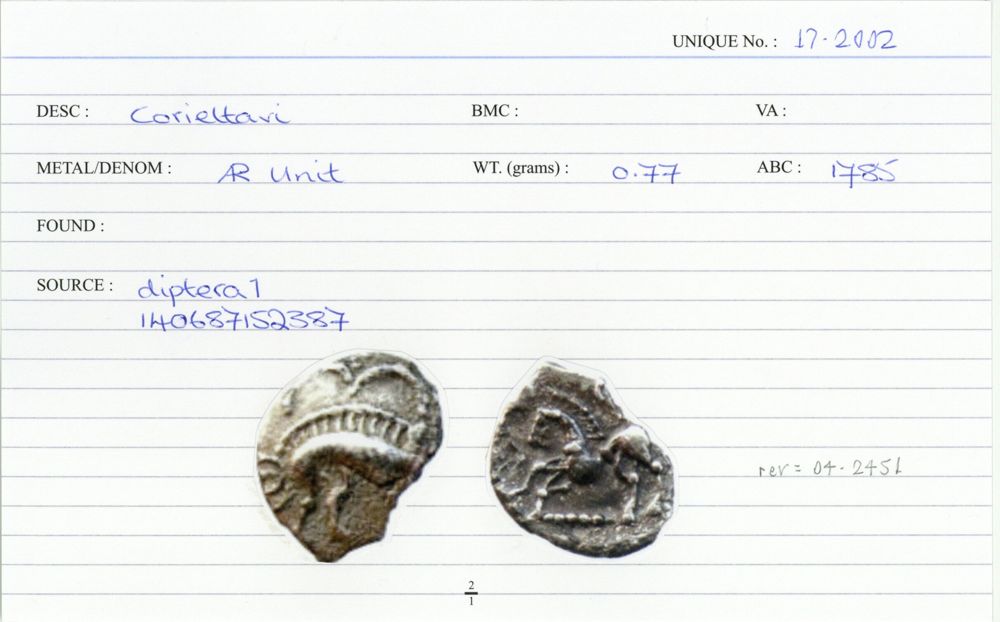 UNIQUE No. : 17-2002
DESC : Corieltavi BMC : VA :
METAL/DENOM : ÆR Unit WT. (grams) : 0.77 ABC : 1785
FOUND :
SOURCE : diptera1
140687152387
rev = 04-2451
2
1